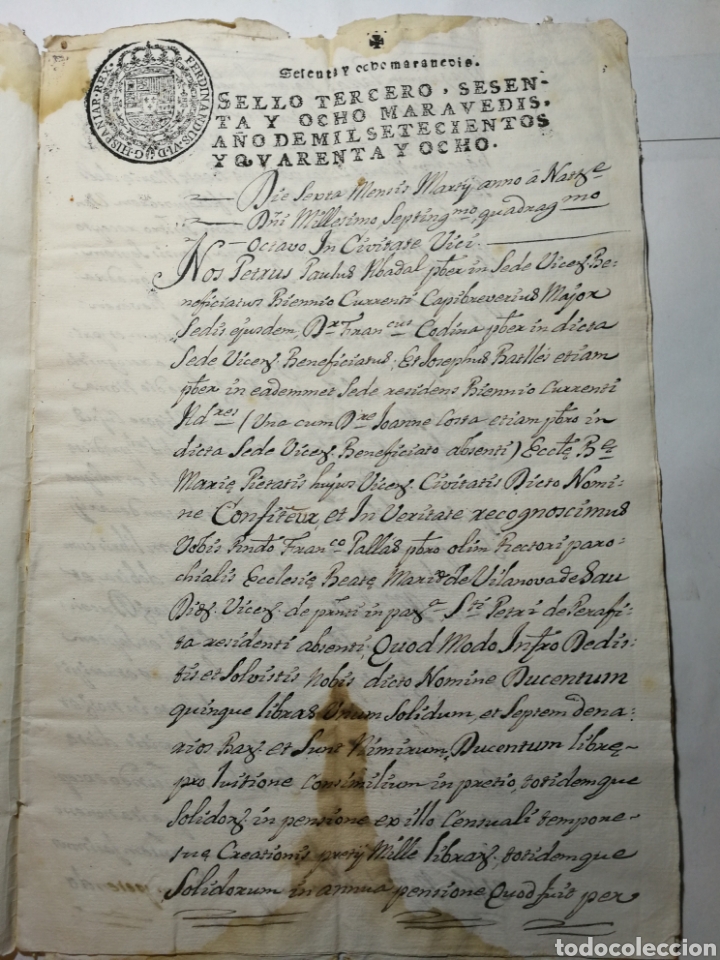 FERDINANDUS·VI·D·G·HISPANIAR·REX·
Sesenta y ocho maravedis.
SELLO TERCERO, SESEN-
TA Y OCHO MARAVEDIS,
AÑO DE MIL SETECIENTOS
Y QVARENTA Y OCHO.
Die Sexta Mensis Martij anno à Natte
Dñi Millesimo Septingmo quadragmo
Octavo In Civitate Vici.
Nos Petrus Paulus Abadal pber in Sede Vicen Be-
neficiatus Biennio Currenti Capibreverius Major
Sedis ejusdem, Dr Francus Codina pber in dicta
Sede Vicen Beneficiatus, Et Josephus Batlles etiam
pber in eademmet Sede residens Biennio Currenti
Adres (Una cum Dre Joanne Costa etiam pbro in
dicta Sede Vicen Beneficiato absenti) Eccłę Bę
Marię Pietatis hujus Vicen Civitatis Dicto Nomi-
ne Confitemur, et In Veritate recognoscimus
Vobis Rndo Franco Pallas pbro olim Rectori paro-
chialis Ecclesię Beatę Marię de Vilanova de Sau
Dięs Vicen de pñti in para Sti Petri de Perafi-
ta residenti absenti, Quod Modo Infro Dedis-
tis et Solvistis Nobis dicto Nomine Ducentum
quinque libras Unum Solidum, et Septem dena-
rios Bar et Sunt Nimirum, Ducentum librę
pro luitione Consimilium in pretio, totidemque
Solidor in pensione ex illo Censuali tempore
suę Creationis pretij Mille librar, totidemque
Solidorum in annua pensione Quod fuit per
todocoleccion.net